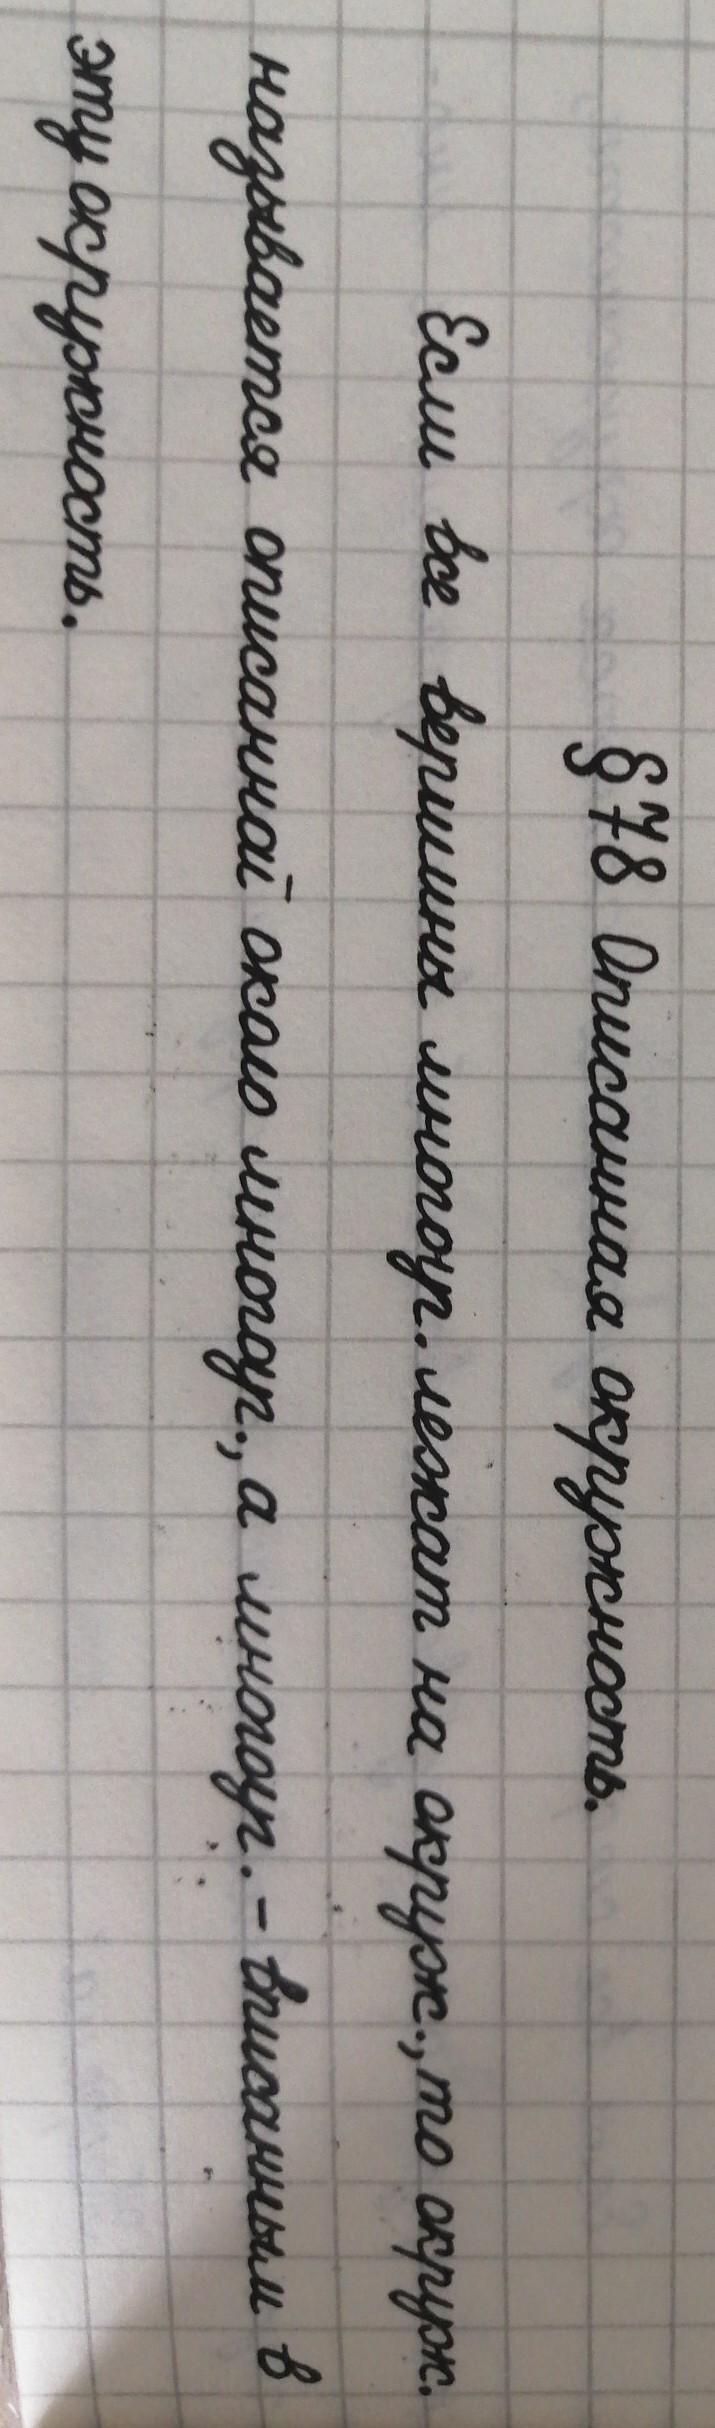 §78 Описанная окружность.
Если все вершины многоуг. лежат на окруж., то окруж.
называется описанной около многоуг., а многоуг. - вписанным в
эту окружность.